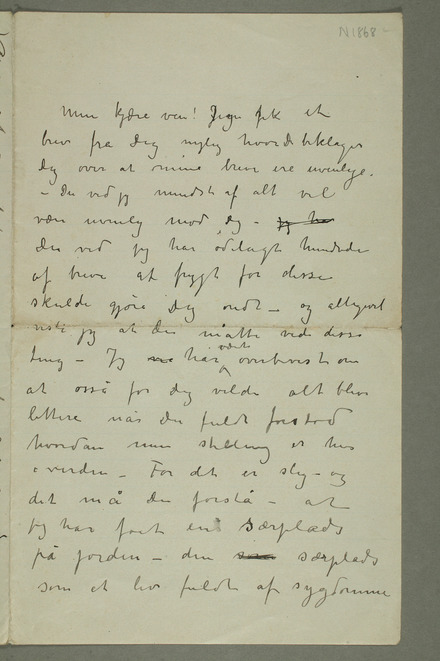 N 1868
Min kjære ven! Jeg fik et
brev fra Dig nylig hvor du beklager
Dig over at mine breve ere uvenlige.
– Du ved jeg mindst af alt vil
være uvenlig mod Dig – jeg har
Du ved jeg har ødelagt hundrede
af breve af frygt for disse
skulde gjøre Dig ondt – og alligevel
vidste jeg at Du måtte vide disse
ting – Jeg har været overbevist om
at også for Dig vilde alt blive
lettere når Du fuldt forstod
hvordan min stilling er her
i verden – For det er slig – og
det må Du forstå – at
jeg har fået en Særplads
på jorden – den særplads
som et liv fuldt af sygdomme